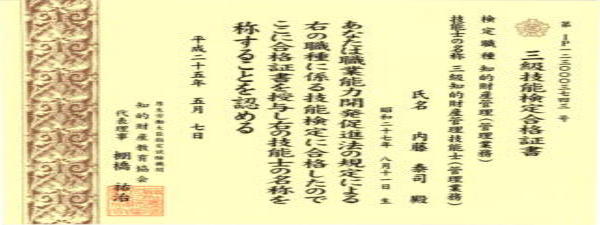 第1P一二三〇〇〇三七四三号
三級技能検定合格証書
検定職種 知的財産管理(管理業務)
技能士の名称 三級知的財産管理技能士(管理業務)
氏名 内藤泰司 殿
昭和二十七年 八月十一日 生
あなたは職業能力開発促進法の規定による
右の職種に係る技能検定に合格したので
ここに合格証書を授与し右の技能士の名称を
称することを認める
平成二十五年 五月 七日
厚生労働大臣指定試験機関
知的財産教育協会
代表理事 棚橋祐治